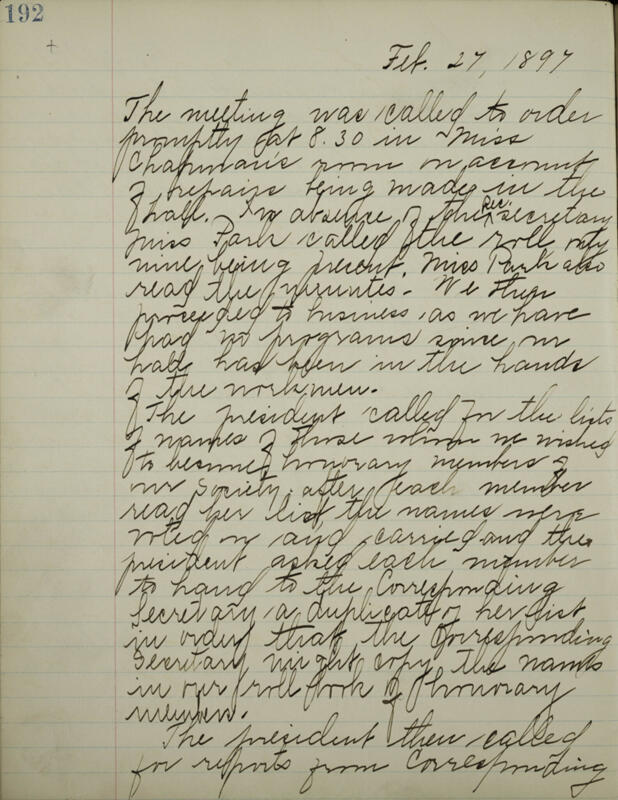 192
Feb. 27, 1897
The meeting was called to order
promptly at 8.30 in Miss
Chapman's room on account
of repairs being made in the
hall. In absence of the Rec. secretary
Miss Park called the roll, only
nine being present. Miss Park also
read the minutes. We then
proceeded to business, as we have
had no programs since our
hall has been in the hands
of the workmen.
The president called for the lists
of names of those whom we wished
to become honorary members of
our Society, after each member
read her list, the names were
voted on and carried and the
president asked each member
to hand to the Corresponding
Secretary a duplicate of her list
in order that the Corresponding
Secretary might copy the names
in our roll book of honorary
members.
The president then called
for reports from Corresponding